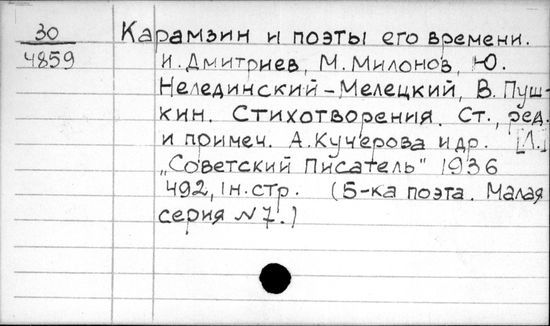 30 Карамзин и поэты его времени.
4859 И. Дмитриев, М. Милонов, Ю.
Нелединский-Мелецкий, В. Пуш-
кин. Стихотворения. Ст., ред.
и примеч. А. Кучерова и др. [Л.]
„Советский Писатель" 1936
492, 1 н. стр. (Б-ка поэта. Малая
серия № 7.)